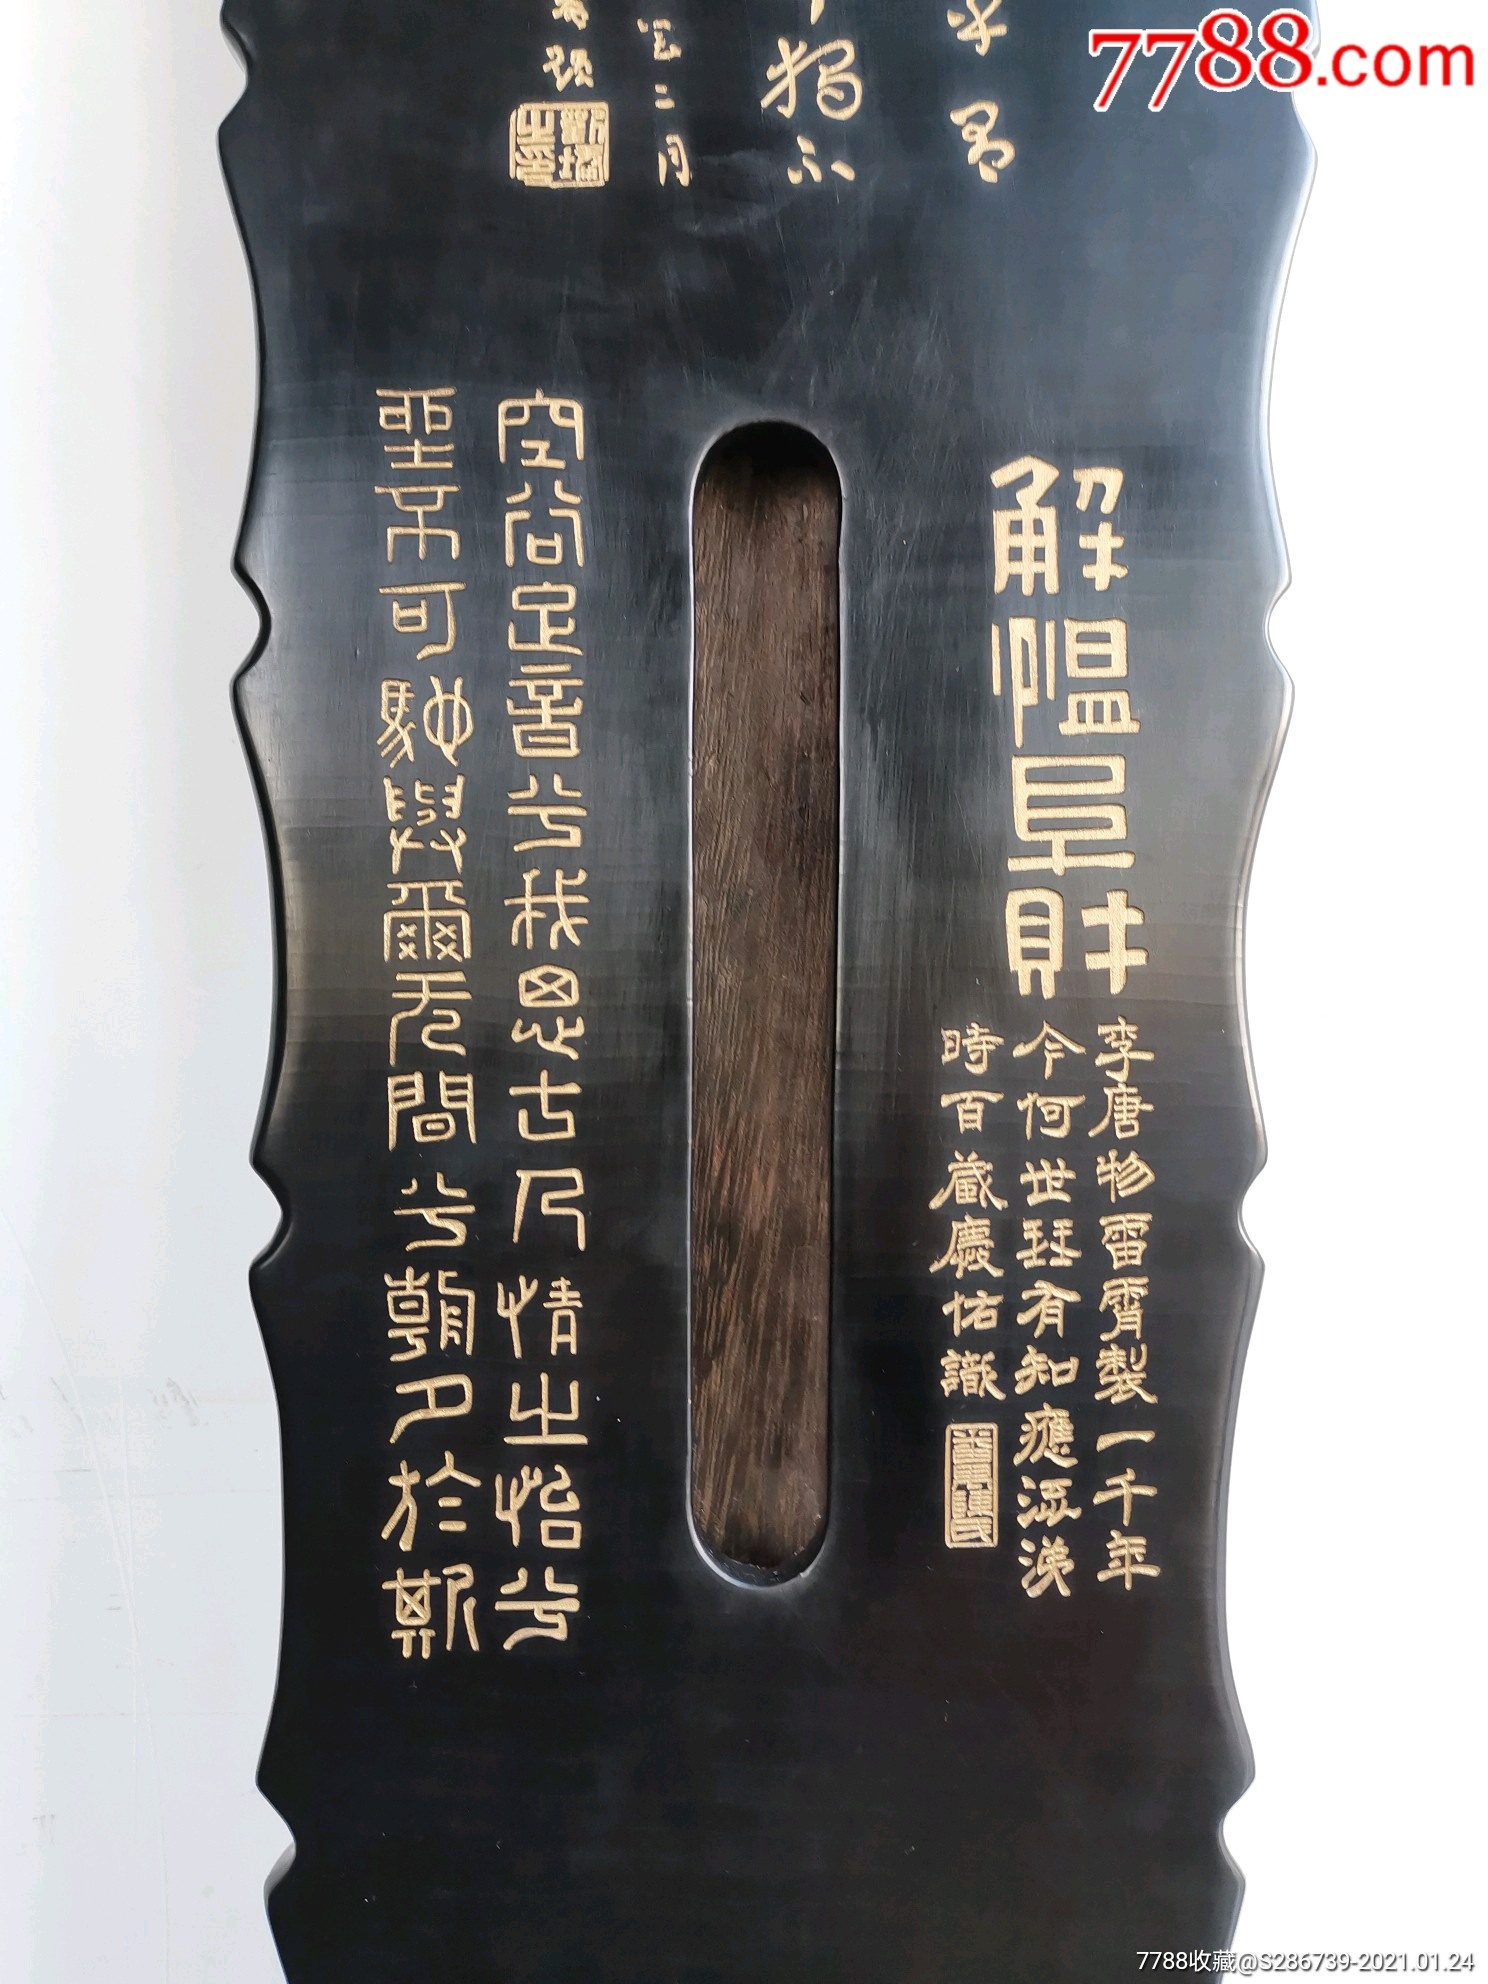 7788.com
獨不
二月
題
解愠阜財
李唐物雷霄製一千年
今何世珡有知應涕
時百蔵慶佑識
空谷足音兮我思古人情之怡兮
不可馳與爾无間兮朝夕於斯
7788收藏@S286739-2021.01.24